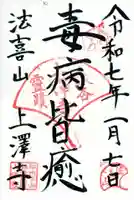 令和七年一月七日
毒病皆癒
法喜山上澤寺